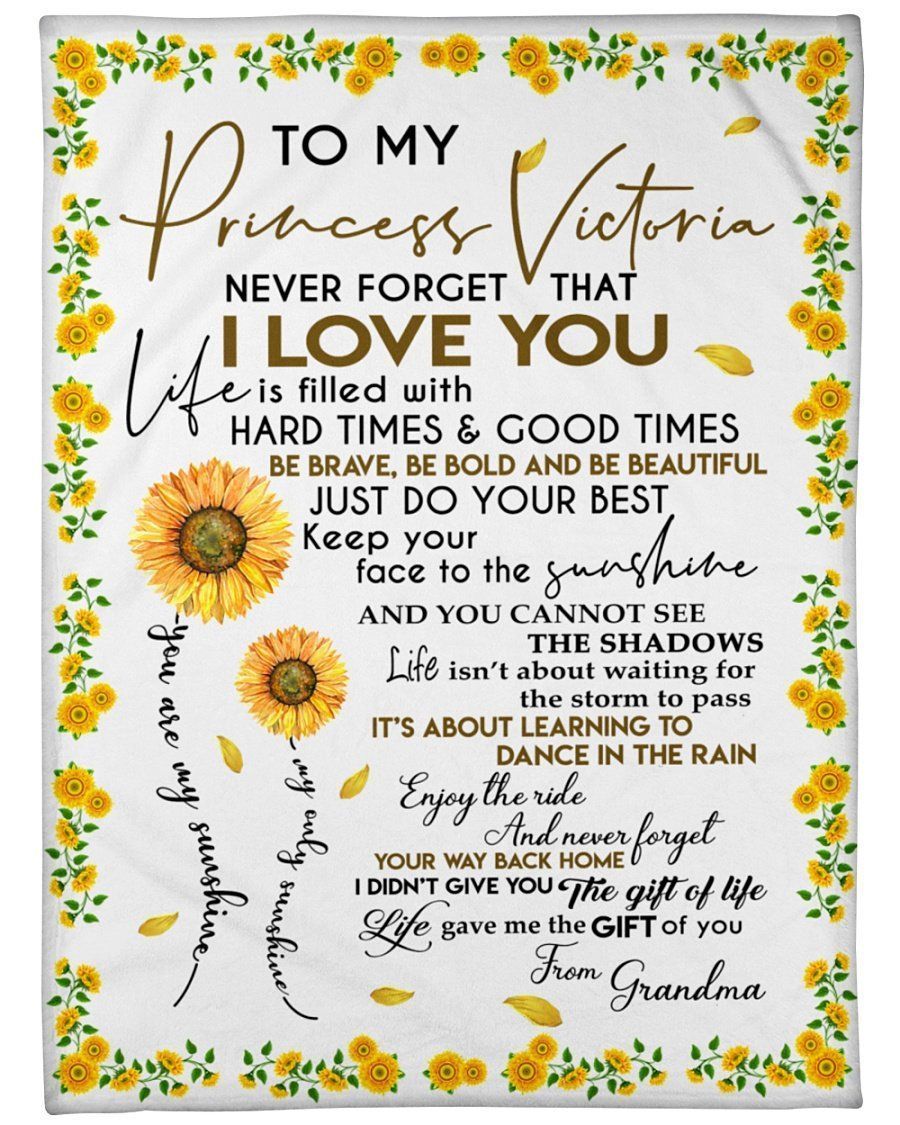 TO MY
Princess Victoria
NEVER FORGET THAT
I LOVE YOU
Life is filled with
HARD TIMES & GOOD TIMES
BE BRAVE, BE BOLD AND BE BEAUTIFUL
JUST DO YOUR BEST
Keep your
face to the sunshine
AND YOU CANNOT SEE
THE SHADOWS
Life isn't about waiting for
the storm to pass
IT'S ABOUT LEARNING TO
DANCE IN THE RAIN
Enjoy the ride
And never forget
YOUR WAY BACK HOME
I DIDN'T GIVE YOU The gift of life
Life gave me the GIFT of you
From Grandma
you are my sunshine
my only sunshine